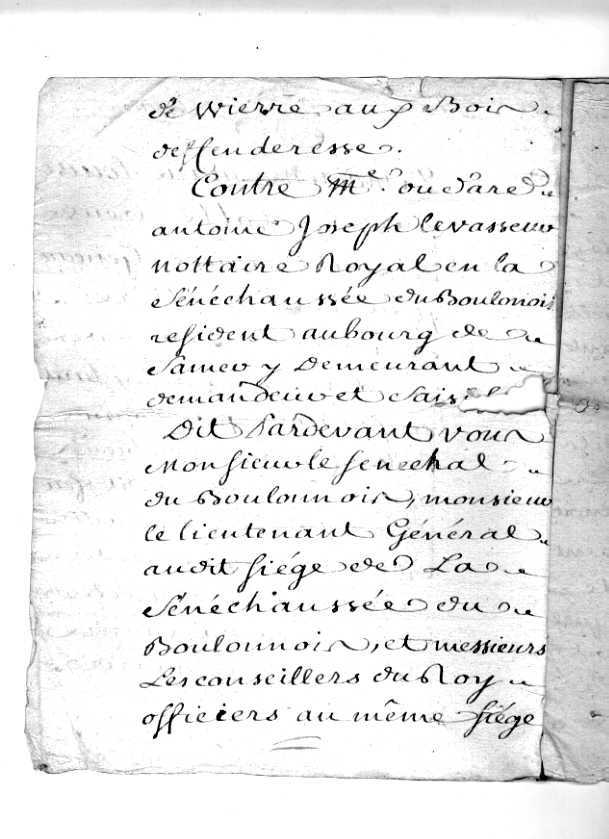 de Wierre aux Bois
deffenderesse.
Contre Me. oudare
antoine Joseph levasseur
nottaire Royal en la
Sénéchaussée du Boulonois
resident au bourg de
Samer y Demeurant
demandeur et Sais
Dit Pardevant vous
Monsieur le senechal
du Boulonnois, monsieur
le lieutenant Général
audit siége de La
Sénéchaussée du
Boulonnois, et messieurs
Les conseillers du Roy
officiers au même siége